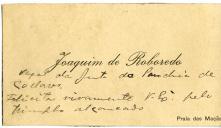 Joaquim de Roboredo
Vogal da Junta de Parochia de
Collares,
Felicita vivamente V. Exª pelo
triumpho alcançado
Praia das Maçãs